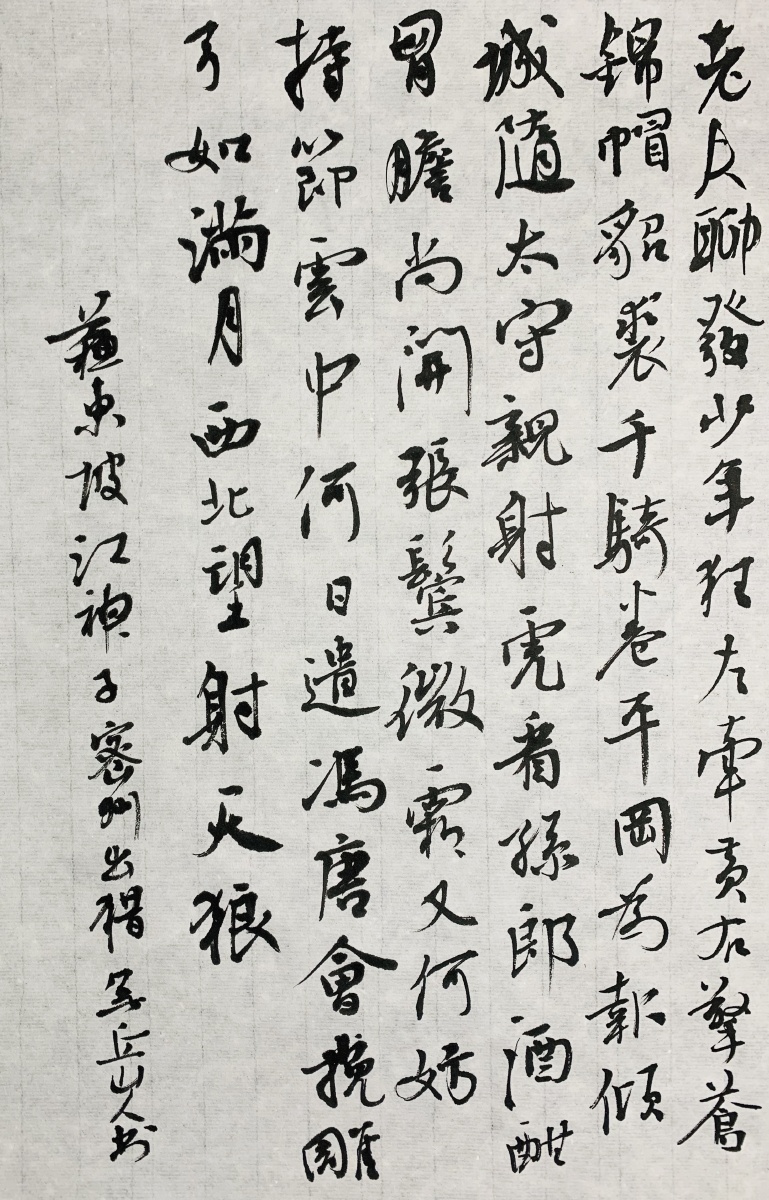 老夫聊發少年狂左牽黃右擎蒼
錦帽貂裘千騎卷平岡為報傾
城隨太守親射虎看孫郎酒酣
胃膽尚開張鬢微霜又何妨
持節雲中何日遣馮唐會挽雕
弓如滿月西北望射天狼
蘇東坡江神子密州出獵 丘山人書